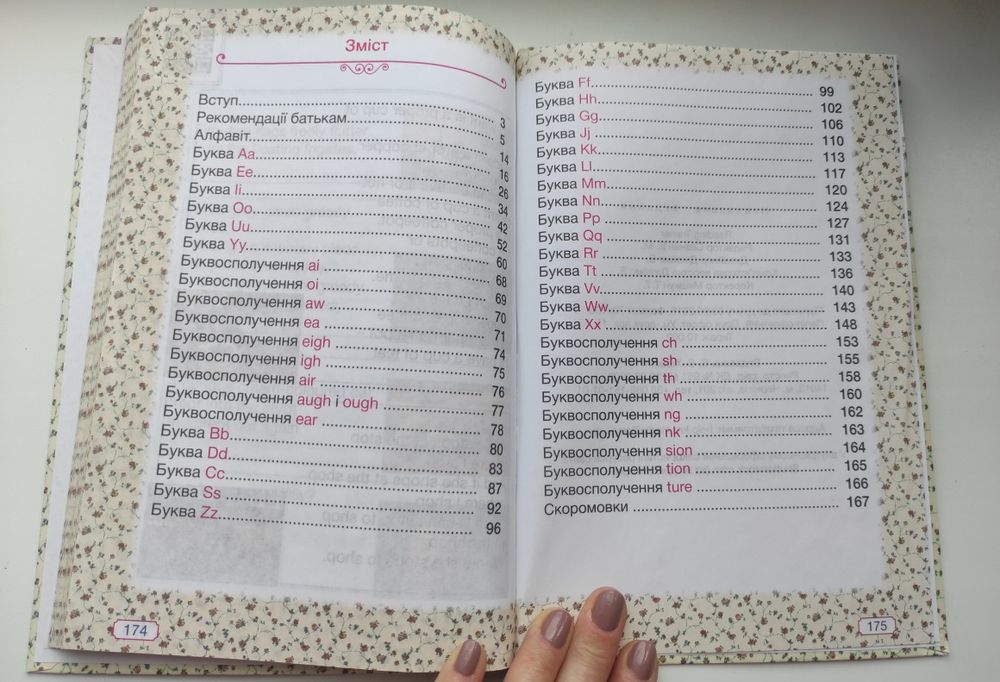 Зміст
Вступ........ 3
Рекомендації батькам........ 5
Алфавіт........ 14
Буква Aa........ 16
Буква Ee........ 26
Буква Ii........ 34
Буква Oo........ 42
Буква Uu........ 52
Буква Yy........ 60
Буквосполучення ai ........ 68
Буквосполучення oi ........ 69
Буквосполучення aw ........ 70
Буквосполучення ea ........ 71
Буквосполучення eigh ........ 74
Буквосполучення igh ........ 75
Буквосполучення air ........ 76
Буквосполучення augh і ough ........ 77
Буквосполучення ear ........ 78
Буква Bb........ 80
Буква Dd........ 83
Буква Cc........ 87
Буква Ss ........ 92
Буква Zz........ 96
174
Буква Ff........ 99
Буква Hh........ 102
Буква Gg........ 106
Буква Jj ........ 110
Буква Kk........ 113
Буква Ll........ 117
Буква Mm........ 120
Буква Nn........ 124
Буква Pp ........ 127
Буква Qq ........ 131
Буква Rr ........ 133
Буква Tt ........ 136
Буква Vv........ 140
Буква Ww........ 143
Буква Xx ........ 148
Буквосполучення ch ........ 153
Буквосполучення sh ........ 155
Буквосполучення th ........ 158
Буквосполучення wh ........ 160
Буквосполучення ng ........ 162
Буквосполучення nk ........ 163
Буквосполучення sion ........ 164
Буквосполучення tion ........ 165
Буквосполучення ture ........ 166
Скоромовки ........ 167
175